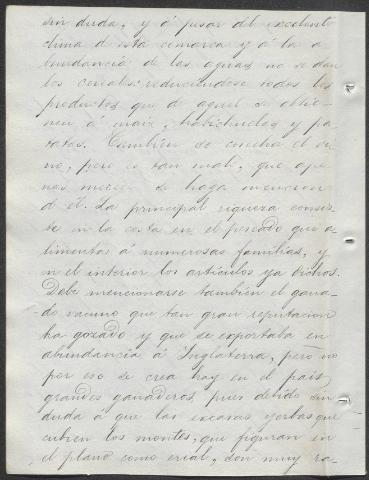 sin duda, y á pesar del excelente
clima de esta comarca y á la a
bundancia de las aguas no se dan
los cereales: reduciendose todos los
productos que de aquel se obtie-
nen á maiz, habichuelas y pa-
tatas. Tambien se cosecha el vi
no, pero es tan malo, que ape
nas merece se haga mencion
d él. La principal riqueza consis
te en la costa en el pescado que a-
limenta á numerosas familias, y
en el interior los artículos ya dichos.
Debe mencionarse tambien el gana-
do vacuno que tan gran reputacion
ha gozado y que se exportaba en
abundancia á Inglaterra, pero no
por eso se crea hay en el pais
grandes ganaderos, pues debido sin
duda á que las escasas yerbas que
cubren los montes, que figuran en
el plano como erial, son muy ra-